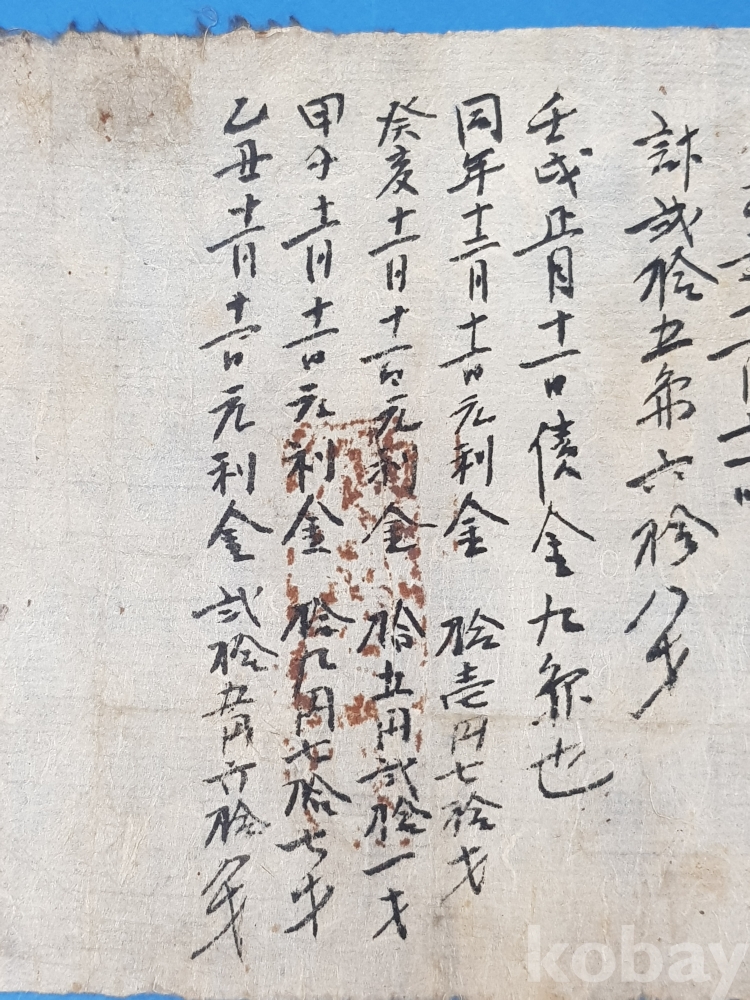 計貳拾五円六拾八戈
壬戌正月十一日債金九円也
同年十二月十一日元利金 拾壱円七拾戈
癸亥十二月十一日元利金 拾五円貳拾一戈
甲子十二月十一日元利金 拾九円七拾七戈
乙丑十二月十一日元利金 貳拾五円六拾八戈
kobay